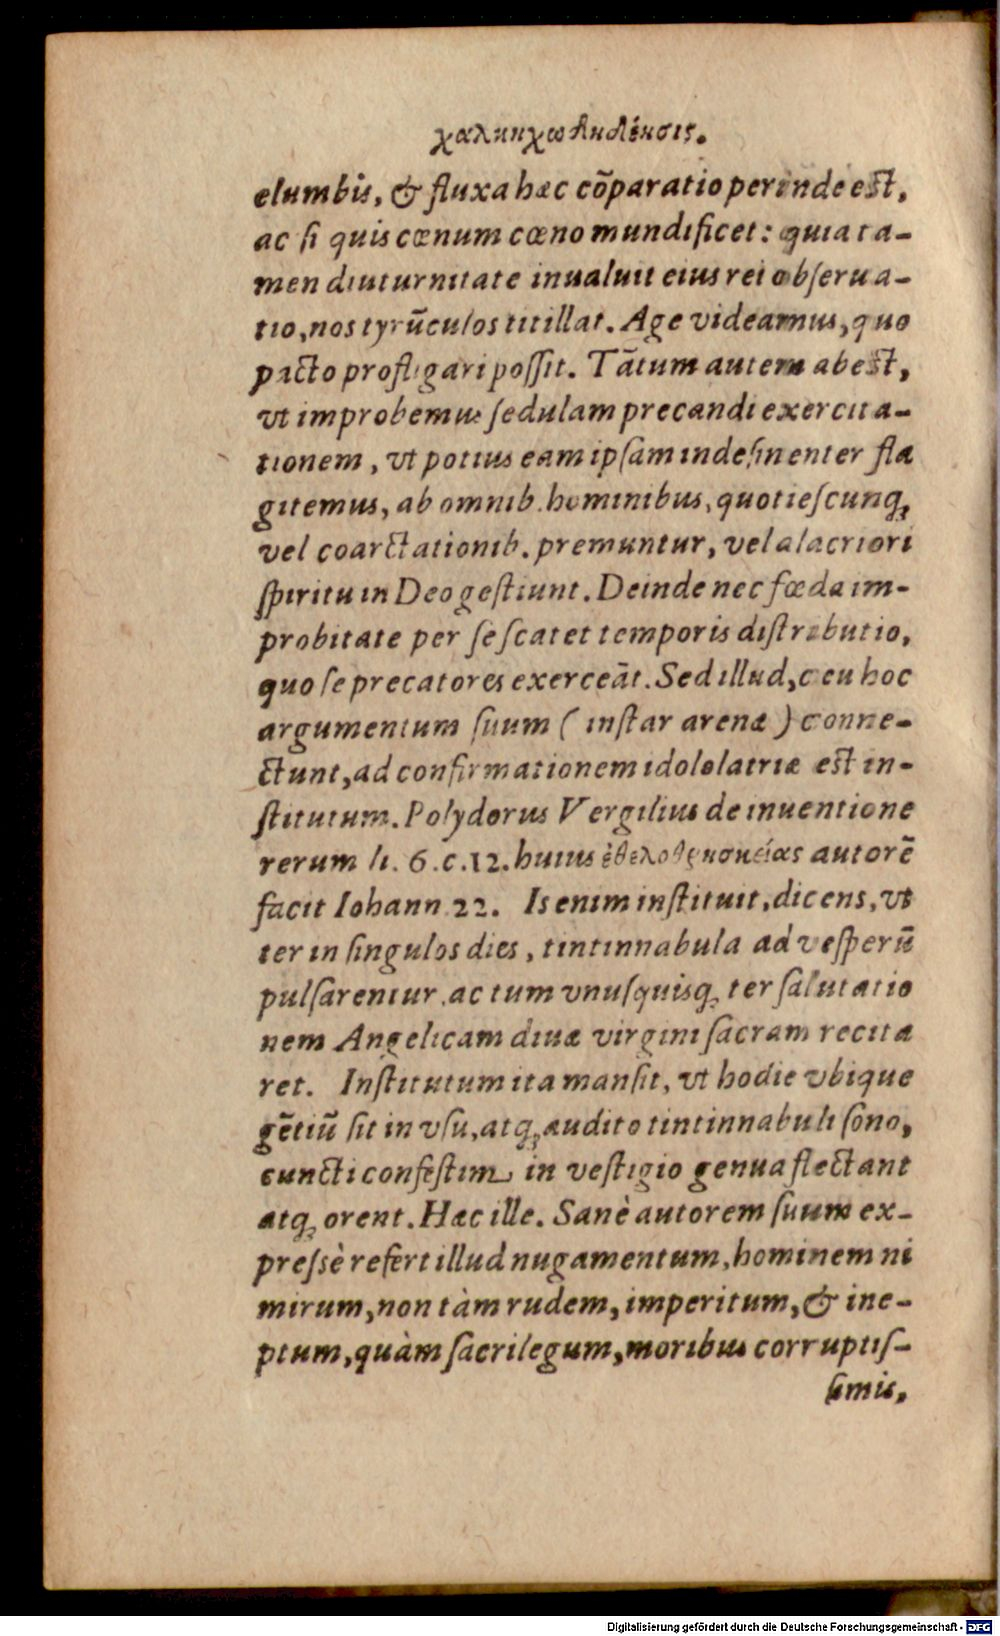 elumbis, & fluxa hæc cõparatio perinde est,
ac si quis cœnum cœno mundificet: quia ta-
men diuturnitate inualuit eius rei obserua-
tio, nos tyrũculos titillat. Age videamus, quo
pacto profligari possit. Tãtum autem abest,
vt improbemus sedulam precandi exercita-
tionem, vt potius eam ipsam indesinenter fla
gitemus, ab omnib. hominibus, quotiescunq;
vel coarctationib. premuntur, vel alacriori
spiritu in Deo gestiunt. Deinde nec fœda im-
probitate per se scatet temporis distributio,
quo se precatores exerceãt. Sed illud, ceu hoc
argumentum suum ( instar arenæ ) conne-
ctunt, ad confirmationem idololatriæ est in-
stitutum. Polydorus Vergilius de inuentione
rerum li. 6. c. 12. huius ἐθελοθρησκείας autorẽ
facit Iohann. 22. Is enim instituit, dicens, vt
ter in singulos dies, tintinnabula ad vesperũ
pulsarentur, ac tum vnusquisq; ter salutatio
nem Angelicam diuæ virgini sacram recita
ret. Institutum ita mansit, vt hodie vbique
gẽtiũ sit in vsu, atq; audito tintinnabuli sono,
cuncti confestim in vestigio genua flectant
atq; orent. Hæc ille. Sanè autorem suum ex-
pressè refert illud nugamentum, hominem ni
mirum, non tàm rudem, imperitum, & ine-
ptum, quàm sacrilegum, moribus corruptis-
simis,
Digitalisierung gefördert durch die Deutsche Forschungsgemeinschaft - DFG